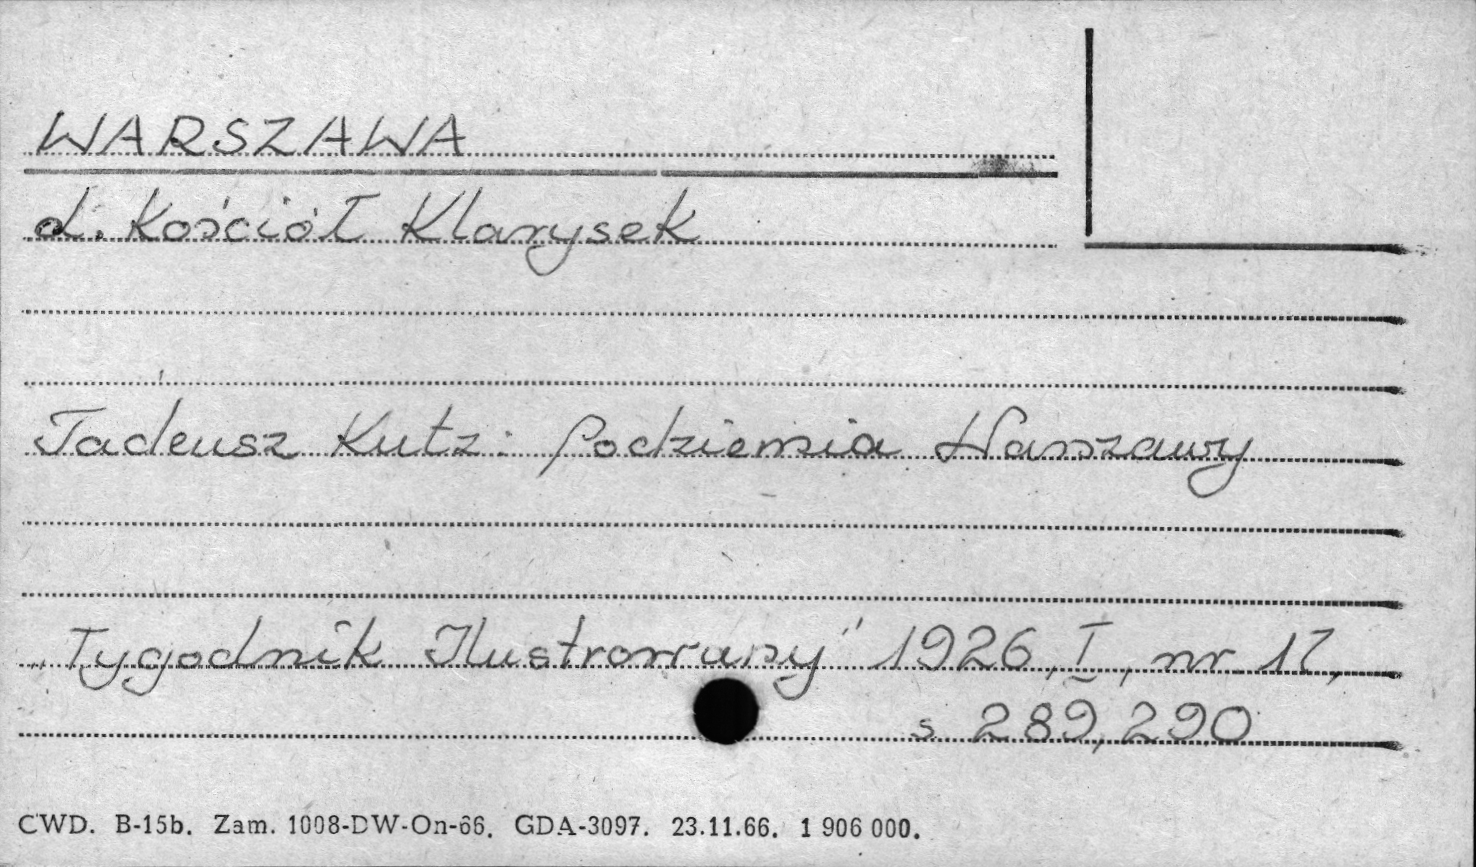 WARSZAWA
d. Kościół Klarysek
Tadeusz Kutz: Podziemia Warszawy
„Tygodnik Ilustrowany" 1926, I, nr 17,
s 289, 290
CWD. B-15b. Zam. 1008-DW-On-66. GDA-3097. 23.11.66. 1 906 000.